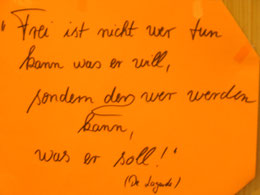 "Frei ist nicht wer tun
kann was er will,
sondern der wer werden
kann,
was er soll!"
(De Lagarde)